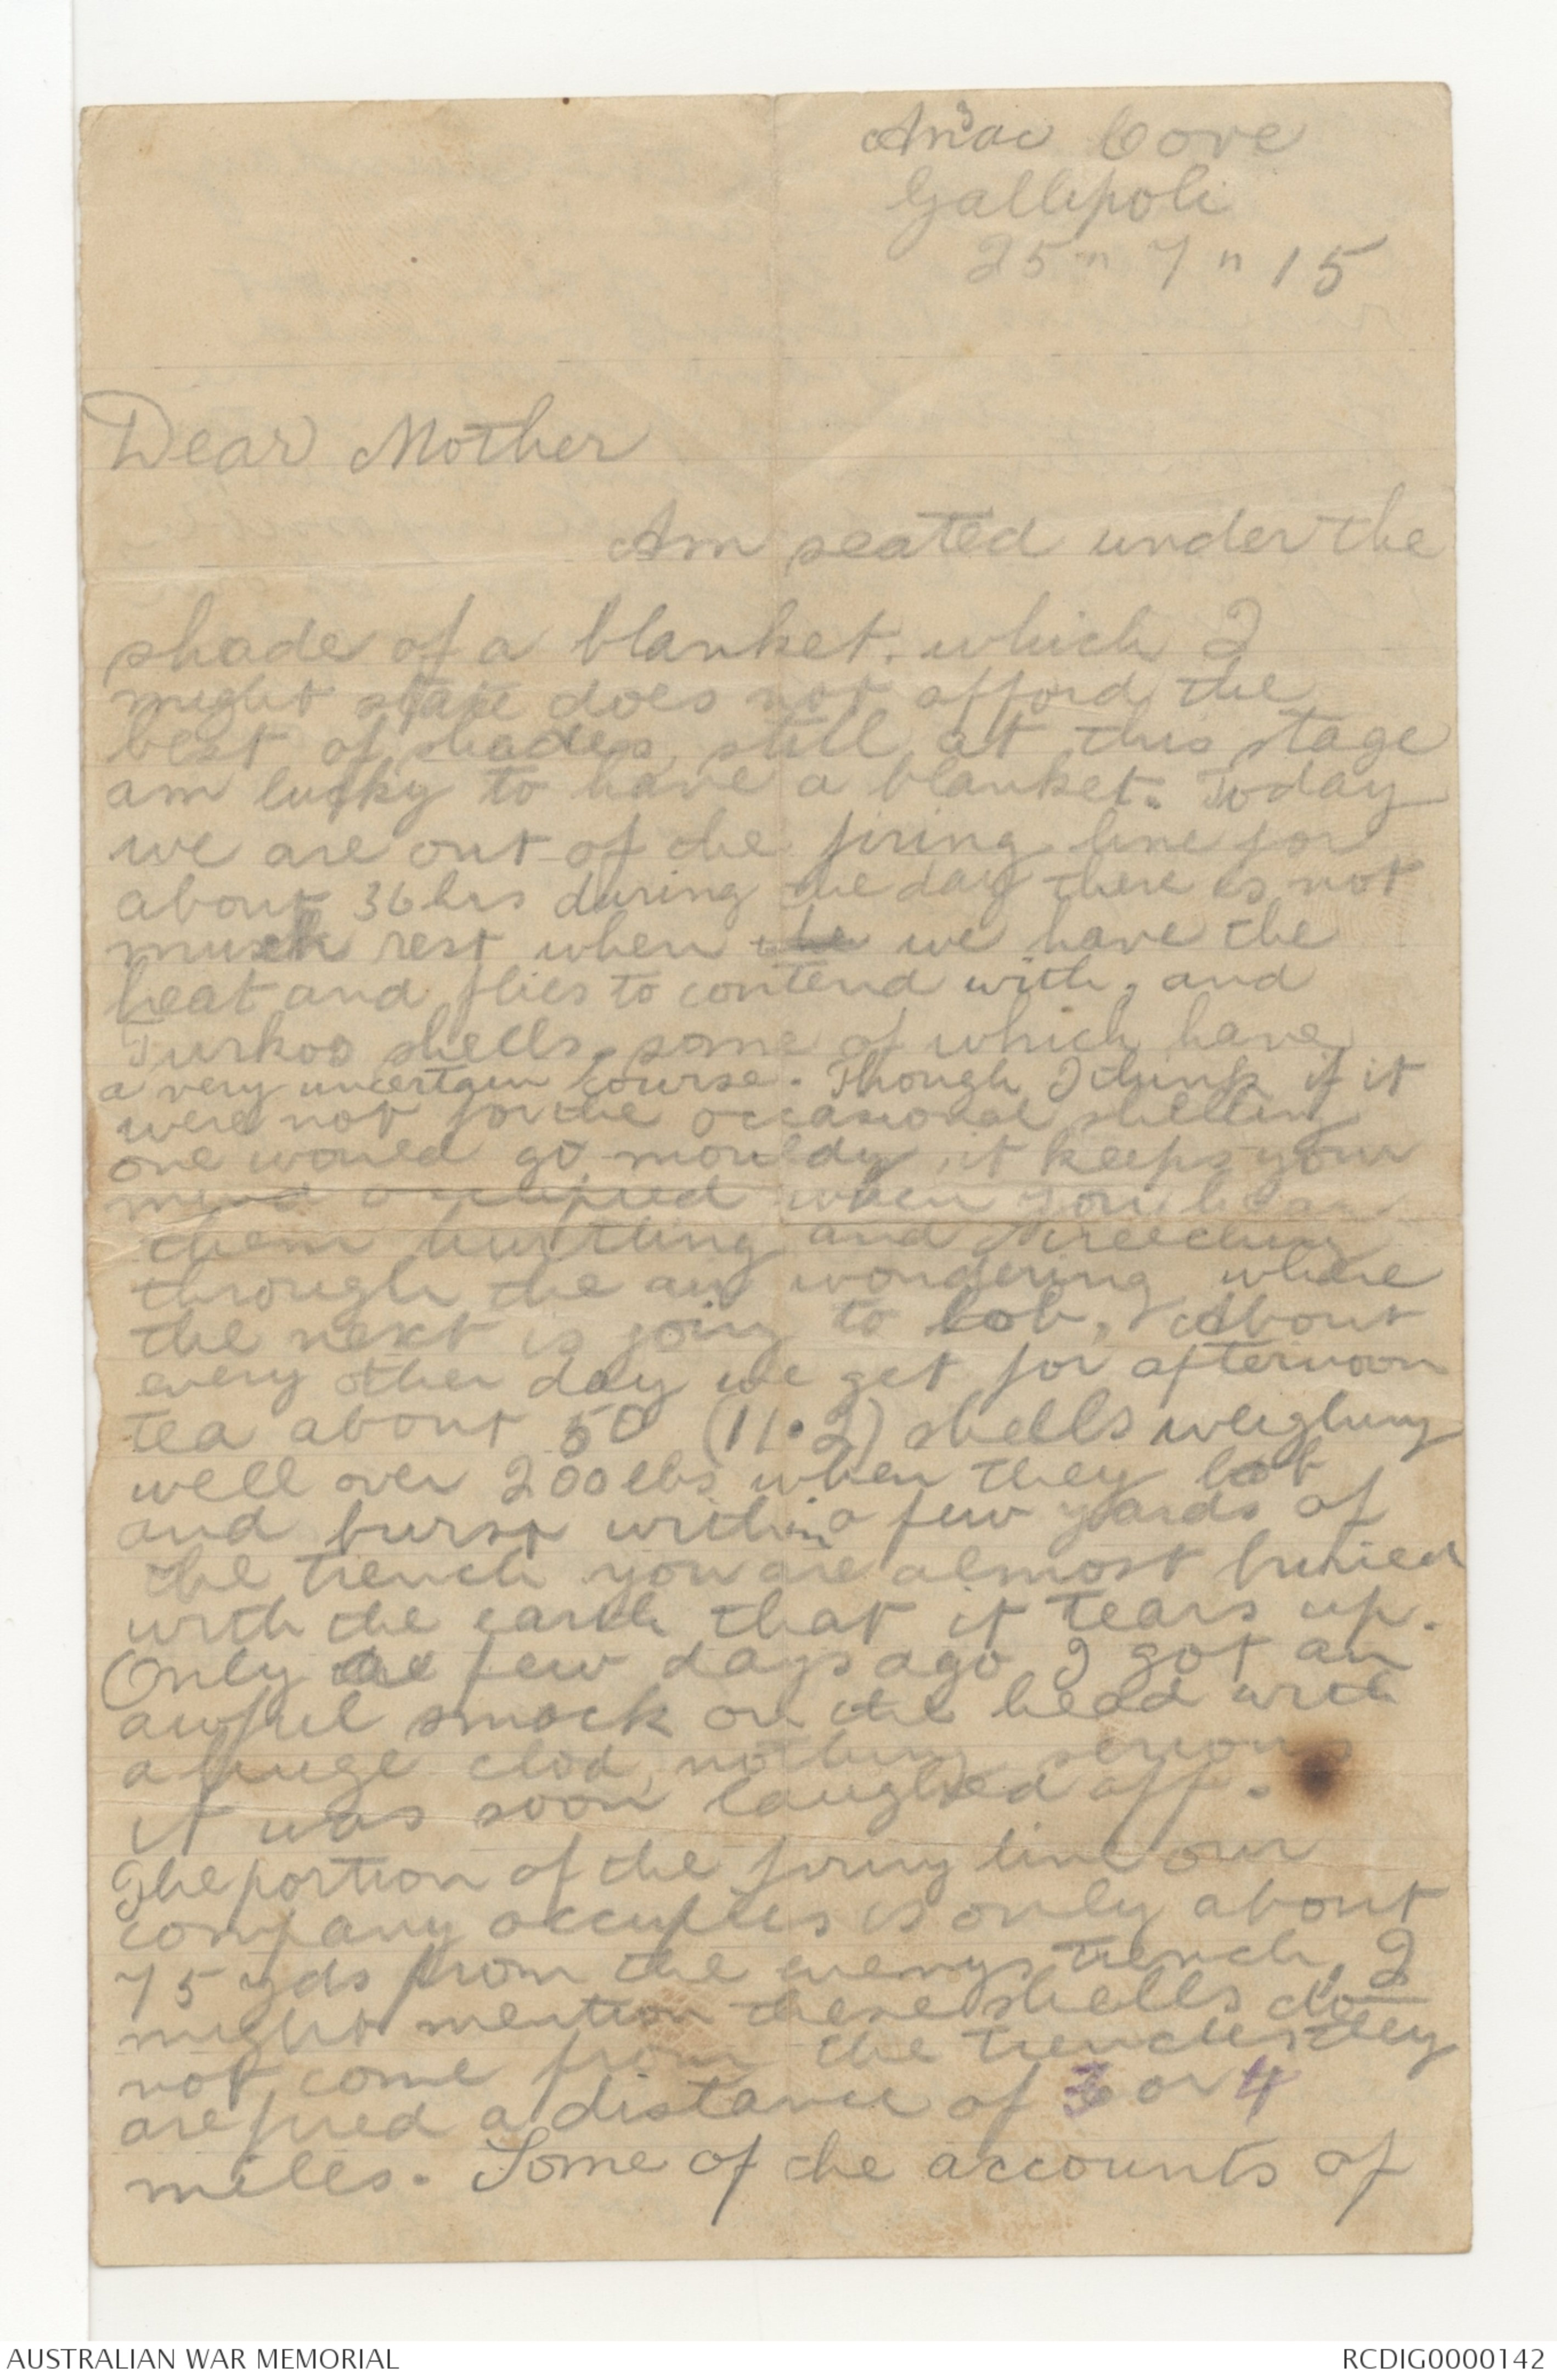 Anzac Cove
Gallipoli
25 " 7 " 15
Dear Mother
Am seated under the
shade of a blanket. which I
might state does not afford the
best of shades, still at this stage
am lucky to have a blanket. Today
we are out of the firing line for
about 36 hrs during the day there is not
much rest when the we have the
heat and flies to contend with, and
Turkoo shells, some of which have
a very uncertain course. Though I think if it
were not for the occasional shelling
one would go mouldy, it keeps your
mind occupied when you hear
them hurtling and screeching
through the air wondering where
the next is going to lob, About
every other day we get for afternoon
tea about 50 (11.2) shells weighing
well over 200 lbs when they lob
and burst within a few yards of
the trench you are almost buried
with the earth that it tears up.
Only a few days ago I got an
awful smack on the head with
a huge clod, nothing serious
it was soon laughed off.
The portion of the firing line our
company occupies is only about
75 yds from the enemys trench, I
might mention these shells do
not come from the trenches they
are fired a distance of 3 or 4
miles. Some of the accounts of
AUSTRALIAN WAR MEMORIAL
RCDIG0000142